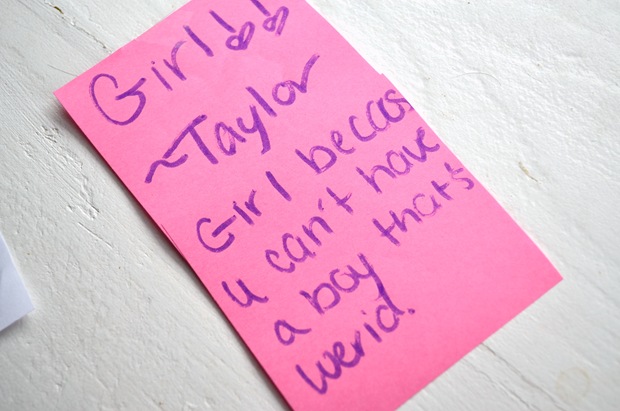 Girl!!
~Taylor
Girl becaus
u can't have
a boy that's
werid.